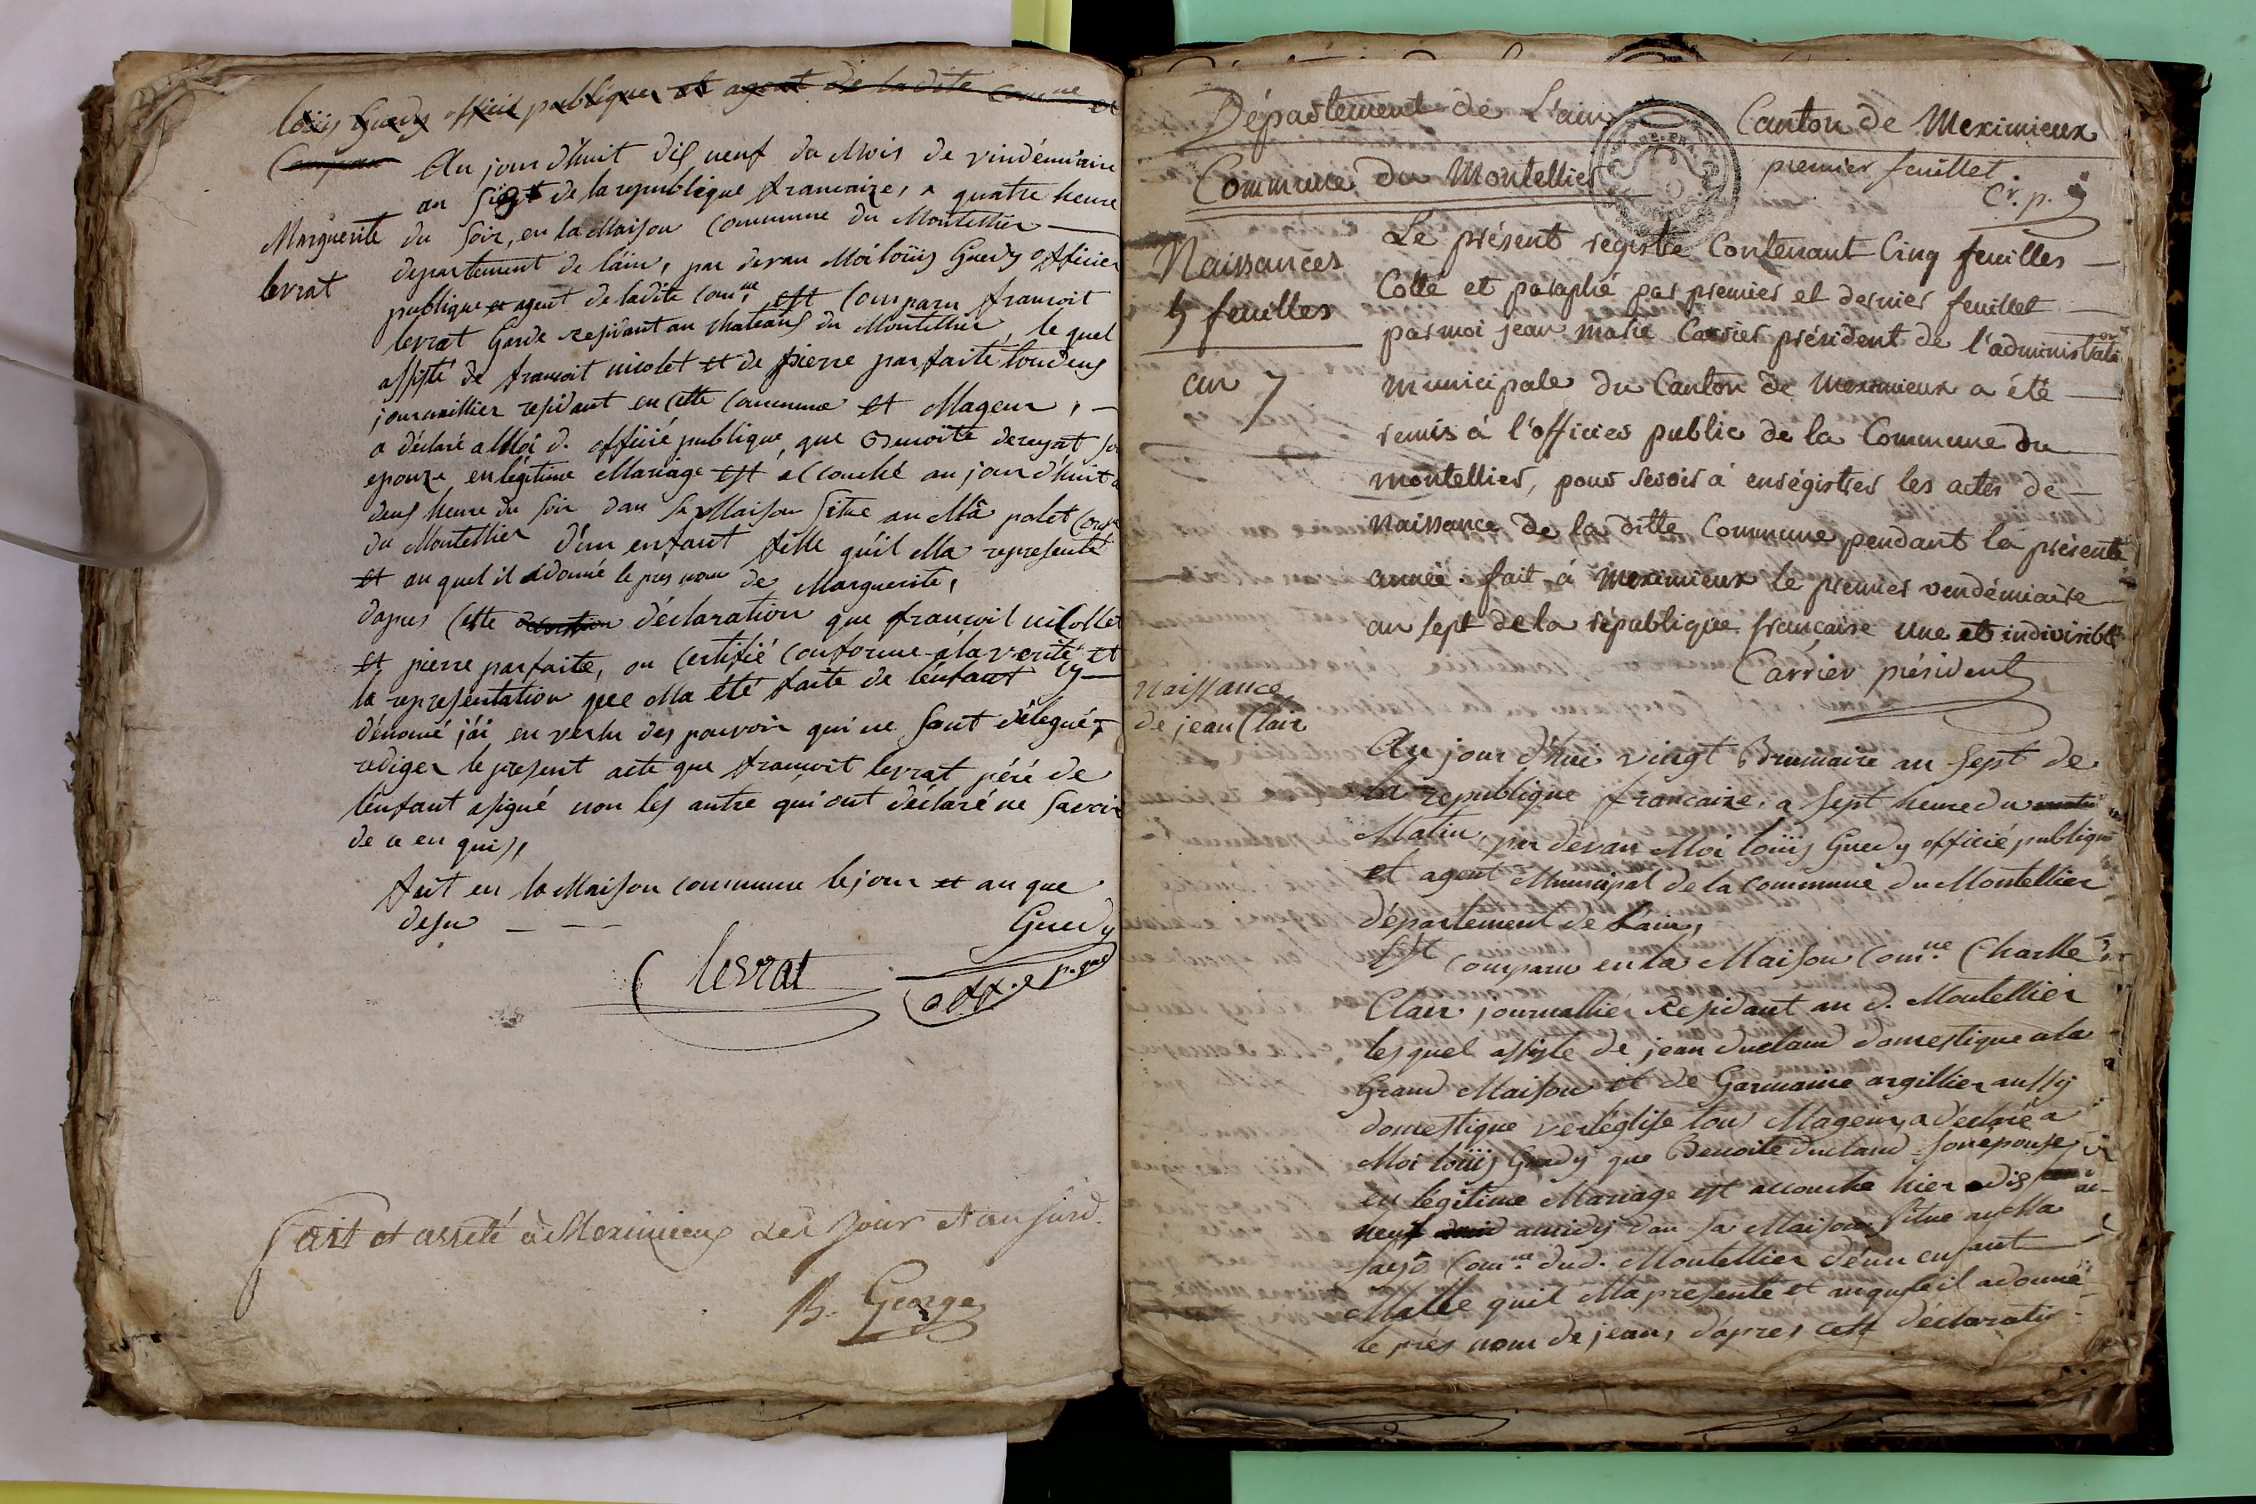 loüis Guedy officié publique et agent de ladite Comune et
Comparu
Au jour d'huit dix neuf du Mois de vindémiaire
an Sept de la republique francaize, a quatre heure
Marguerite
levrat
du Soir, en la Maison commune du Montellier
departement de láin, par devan Moi loüis Guedy officier
publique et agent de ladite Comne, est Comparu francoit
levrat Garde residant au chateaux du Montellier, le quel
assisté de francoit nicolet et de pierre parfaite tou deus
journaillier residant en cette Commune et Mageur,
a déclaré a Moi d. officié publique, que Benoite
epouze en légitime Mariage est accouché au jour d'huit a
deus heure du Soir dan Sa Maison Situe au Mâ palet
du Montellier d'un enfant fille quil Ma representé
et au quel il a donné le prés nom de Marguerite,
dapres Cette déclaration que francoit nicollet
et pierre parfaite, on Certifié conforme a la verité et
la representation que Ma été faite de lénfant cy
dénomé jái en vertu des pouvoir qui me sont délegué,
rediger le present acte que francoit levrat péré de
lénfant a signé non les autre qui ont déclaré ne Savoir
de ce en quis,
fait en la Maison commune le jour et an que
desu
Guedy
levrat
off.e p.que
fait et arreté a Meximieux les jour et an susd.
B. George
Département de L'ain
Canton de Meximieux
Commune du Montellier
premier feuillet
Cr. p.
Naissances
5 feuilles
an 7
Le présent registre Contenant Cinq feuilles
Cotté et paraphé par premier et dernier feuillet
par moi jean marie Carrier président de l'administration
municipale du Canton de Meximieux a été
remis à l'officier public de la Commune du
montellier, pour servir à enrégistrer les actes de
Naissance de la ditte Commune pendant la présente
année. fait à Meximieux le premier vendémiaire
an sept de la république française une et indivisible
Carrier président
Naissance
de jean Clair
Au jour d'hui vingt Brumaire an Sept de
la republique francaize, a Sept heure du
Matin, par devan Moi loüis Guedy officié publique
et agent Municipal de la commune du Montellier
département de l'ain,
Est comparu en la Maison Comne Charlle
Clair journallier Residant au d. Montellier
lesquel assisté de jean duclaud domestique a la
Grand Maison et de Garmaine argillier aussy
domestique ver léglise tous Mageur, a déclaré a
Moi loüis Guedy que Benoite duclaud son epouse
en légitime Mariage est accouche hier dix
neuf a midy dan sa Maison Situe au Ma
Comne dud. Montellier dún enfant
Malle quil Ma presenté et auquel il a donné
le prés nom de jean, dápres cest déclaratio